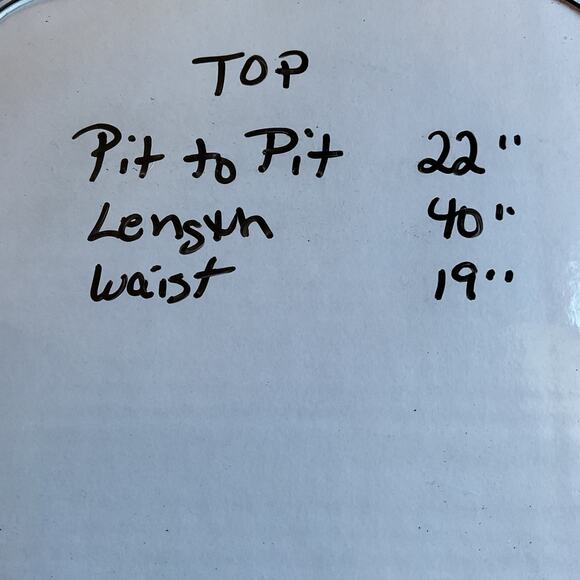 TOP
Pit to Pit 22"
Length 40"
Waist 19"